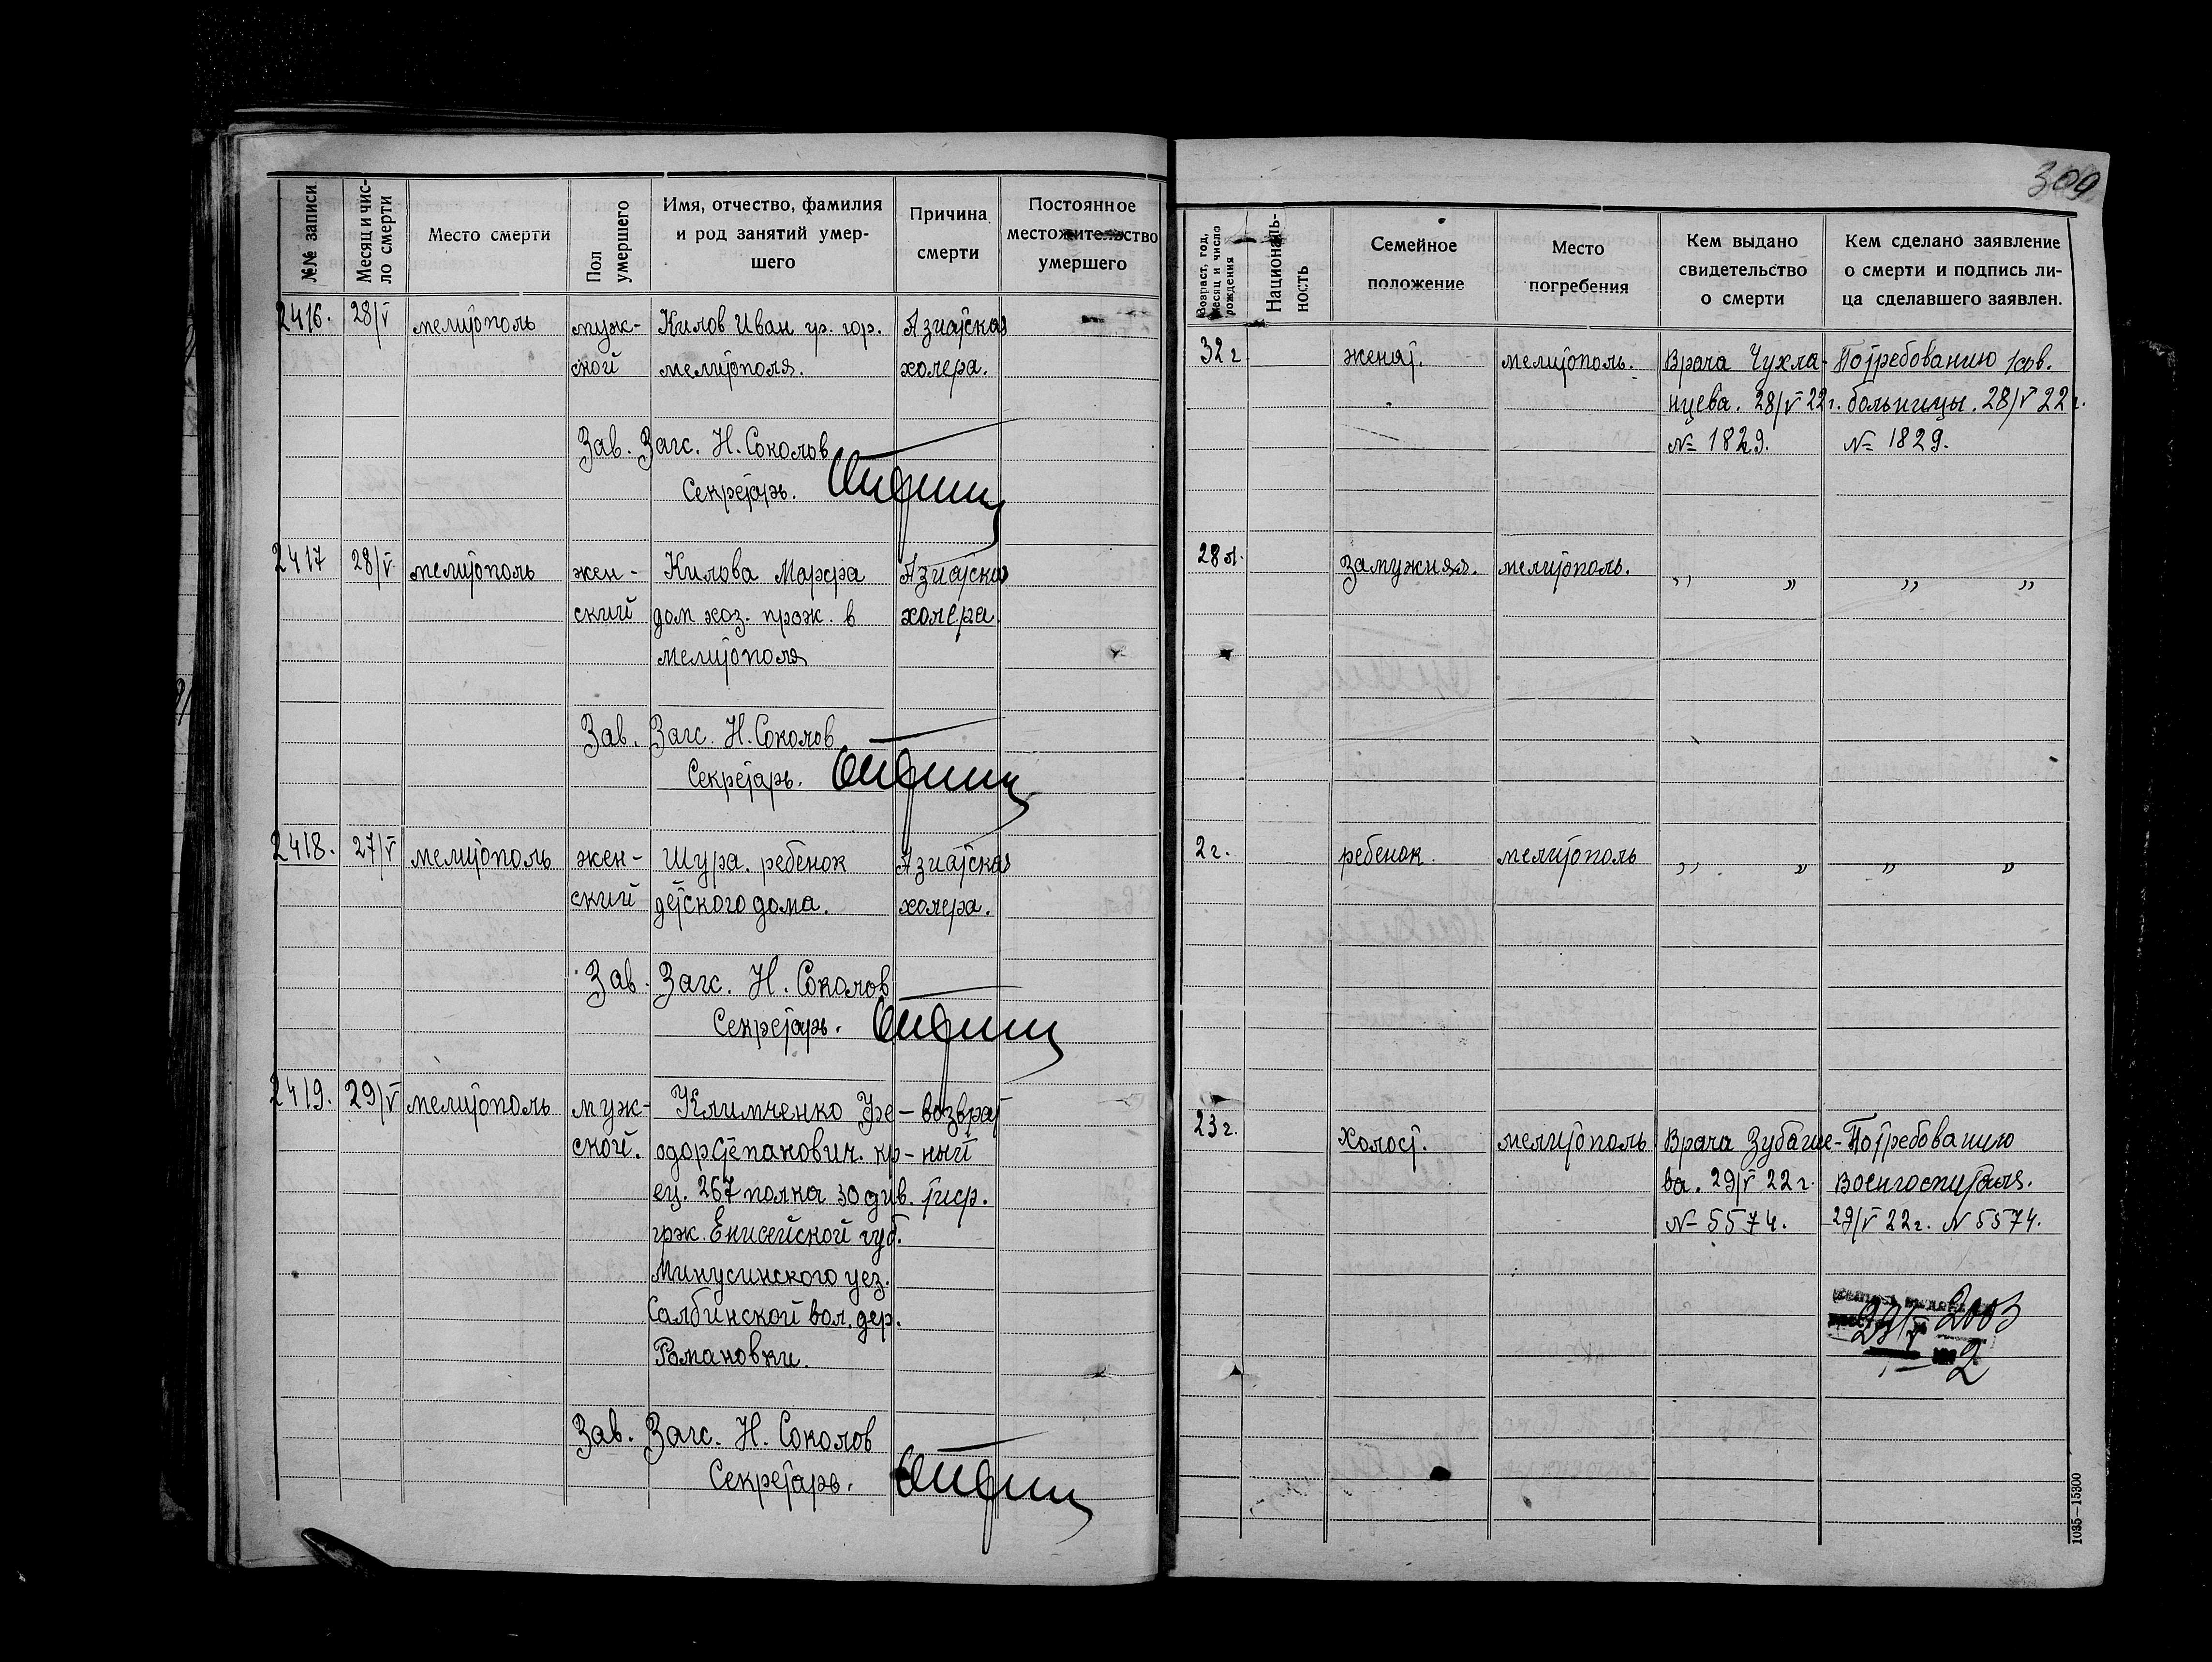 309
№№ записи
Месяц и чис-
ло смерти
Место смерти
Пол
умершего
Имя, отчество, фамилия
и род занятий умер-
шего
Причина
смерти
Постоянное
местожительство
умершего
Возраст, год,
месяц и число
рождения
Националь-
ность
Семейное
положение
Место
погребения
Кем выдано
свидетельство
о смерти
Кем сделано заявление
о смерти и подпись ли-
ца сделавшего заявлен.
2416. 28/V мелитополь муж- Килов Иван гр. гор. Азиатская
ской мелитополя. холера.
32 г женат. мелитополь. Врача Чухла- По требованию
нцева. 28/V 22 г. больницы. 28/V 22 г.
№ 1829. № 1829.
Зав. Загс. Н. Соколов
Секретарь.
2417 28/V мелитополь жен- Килова Марфа Азиатская
ский дом хоз. прож. в холера
мелитополя
28 л. Замужняя. мелитополь. „ „ „ „
Зав. Загс. Н. Соколов
Секретарь.
2418. 27/V мелитополь жен- Шура. ребенок Азиатская
ский детского дома. холера.
2 г. ребенок. мелитополь „ „ „ „
Зав. Загс. Н. Соколов
Секретарь.
2419. 29/V мелитополь муж- Климченко Фе- возврат
ской. одор Степанович. кр- ный
ец. 267 полка 30 див. тиф.
грж. Енисейской губ.
Минусинского уез.
Салбинской вол. дер.
Романовки.
23 г. Холост. мелитополь Врача Зубаше- По требованию
ва. 29/V 22 г. Военгоспиталя.
№ 5574. 29/V 22 г. № 5574.
29/V 2003
2
Зав. Загс. Н. Соколов
Секретарь.
1035—15300